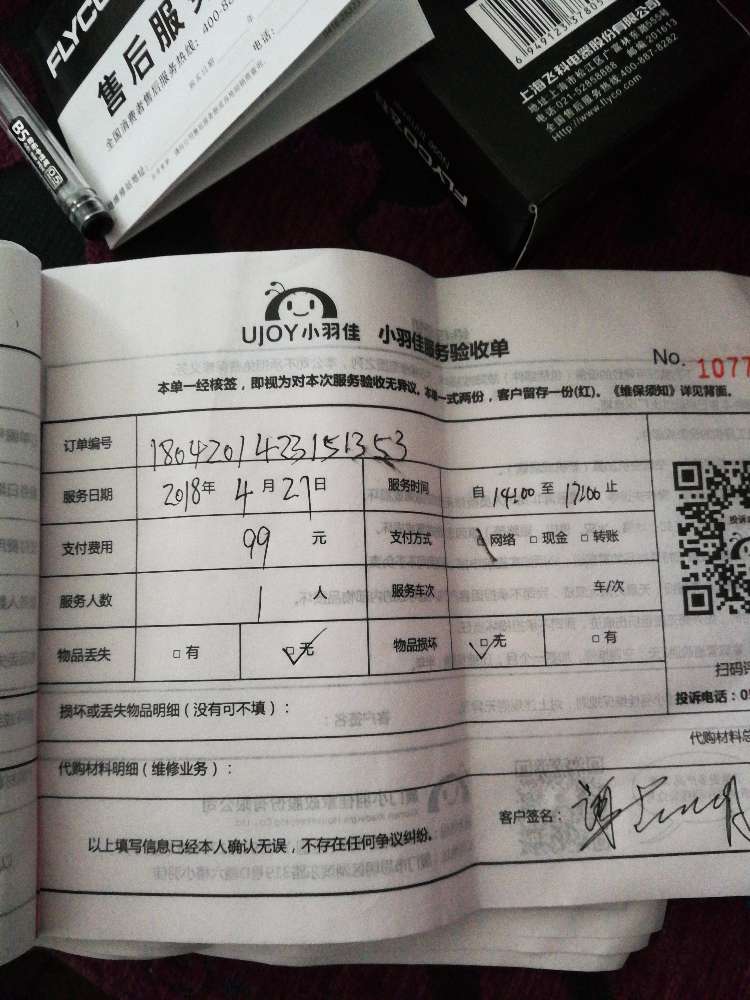 FLYCO
售后服务
全国消费者售后服务热线：400-88
购买日期
电话：
B5
0.5
6949123
上海飞科电器股份有限公司
地址上海市松江区广富林东路555号
电话021-52858888 邮编201613
售后服务热线400-887-8282
Http://www.flyco.com
FLYCO
UJOY小羽佳 小羽佳服务验收单
No. 1077
本单一经核签，即视为对本次服务验收无异议。本单一式两份，客户留存一份(红)。《维保须知》详见背面。
订单编号 1804201423151353
服务日期 2018年 4月 27日 服务时间 自 14:00 至 17:00 止
支付费用 99 元 支付方式 网络 □ 现金 □ 转账
服务人数 1 人 服务车次 车/次
物品丢失 □ 有 □ 无 物品损坏 □ 无 □ 有
扫码评
损坏或丢失物品明细（没有可不填）：
投诉电话：05
代购材料明细（维修业务）：
代购材料总
客户签名：
以上填写信息已经本人确认无误，不存在任何争议纠纷。